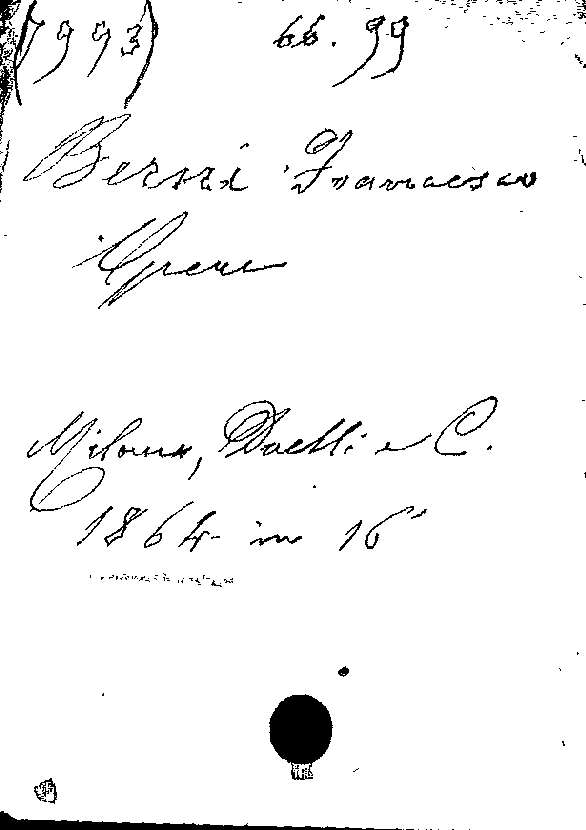 (7993) 66.99
Berni Francesco
Opere
Milano, Daelli e C.
1864 in 16°